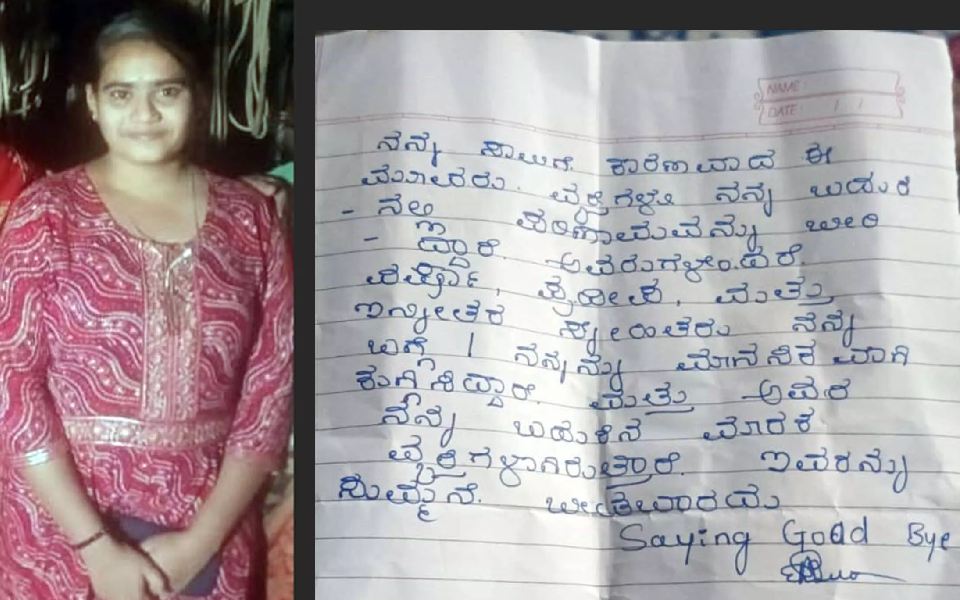 NAME:
DATE: / /
ನನ್ನ ಸಾವಿಗೆ ಕಾರಣವಾದ ಈ
ಮೂವರು. ವ್ಯಕ್ತಿಗಳು ನನ್ನ ಬದುಕಿ
- ನಲ್ಲಿ ಪರಿಣಾಮವನ್ನು ಬೀರಿ
- ದ್ದಾರೆ. ಅವರುಗಳೆಂದರೆ.
ಪ್ರದೀಪ, ಮತ್ತು
ಇನ್ನೀತರ ಸ್ನೇಹಿತರು ನನ್ನ
ಬಗ್ಗೆ / ನನ್ನನ್ನು ಮಾನಸಿಕ ವಾಗಿ
ಕುಗ್ಗಿಸಿದ್ದಾರೆ. ಮತ್ತು ಅವರ
ನನ್ನ ಬದುಕಿನ ಮಾರಕ
ವ್ಯಕ್ತಿಗಳಾಗಿರುತ್ತಾರೆ. ಇವರನ್ನು
ಸುಮ್ಮನೆ. ಬೀಡಬಾರದು
Saying Good Bye